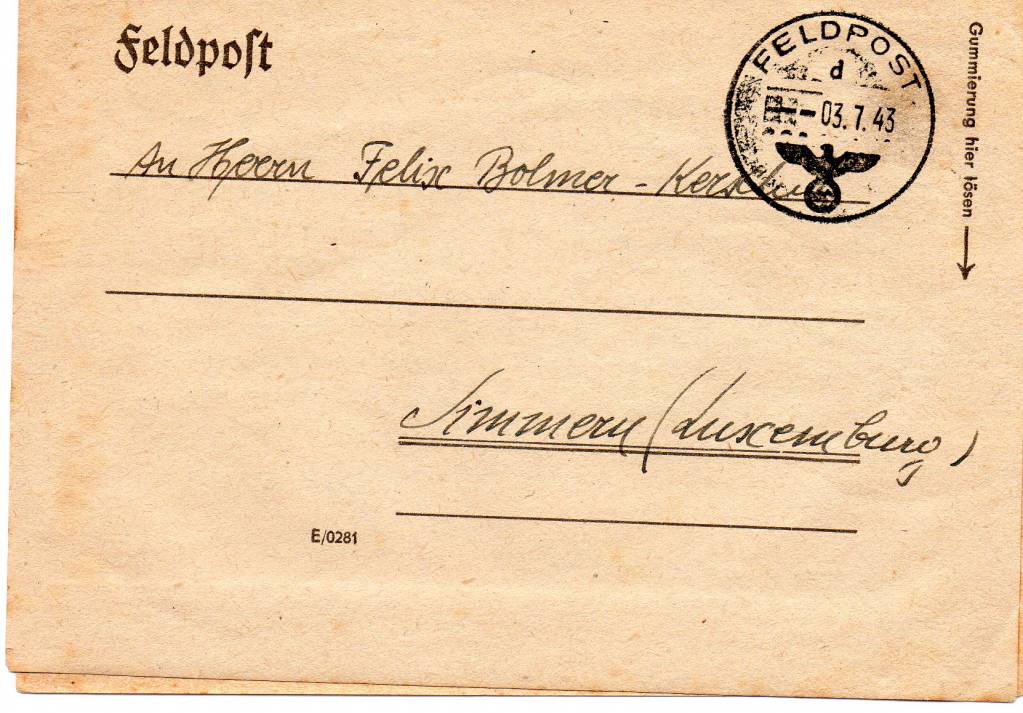 Feldpost
FELDPOST
d
-03.7.43
Gummierung hier lösen
An Herrn Felix Bolmer -
Simmern (Luxemburg)
E/0281